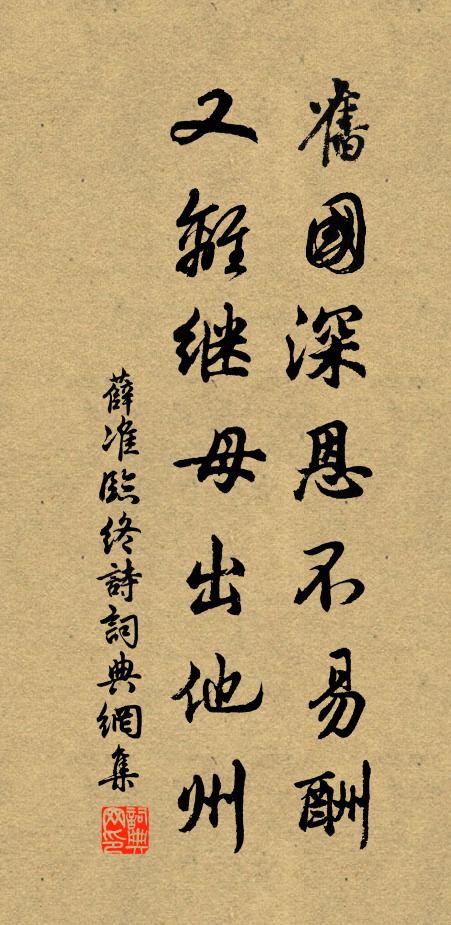 舊國深恩不易酬
又離继母出他州
薛准臨终詩詞典網集
詞典网印